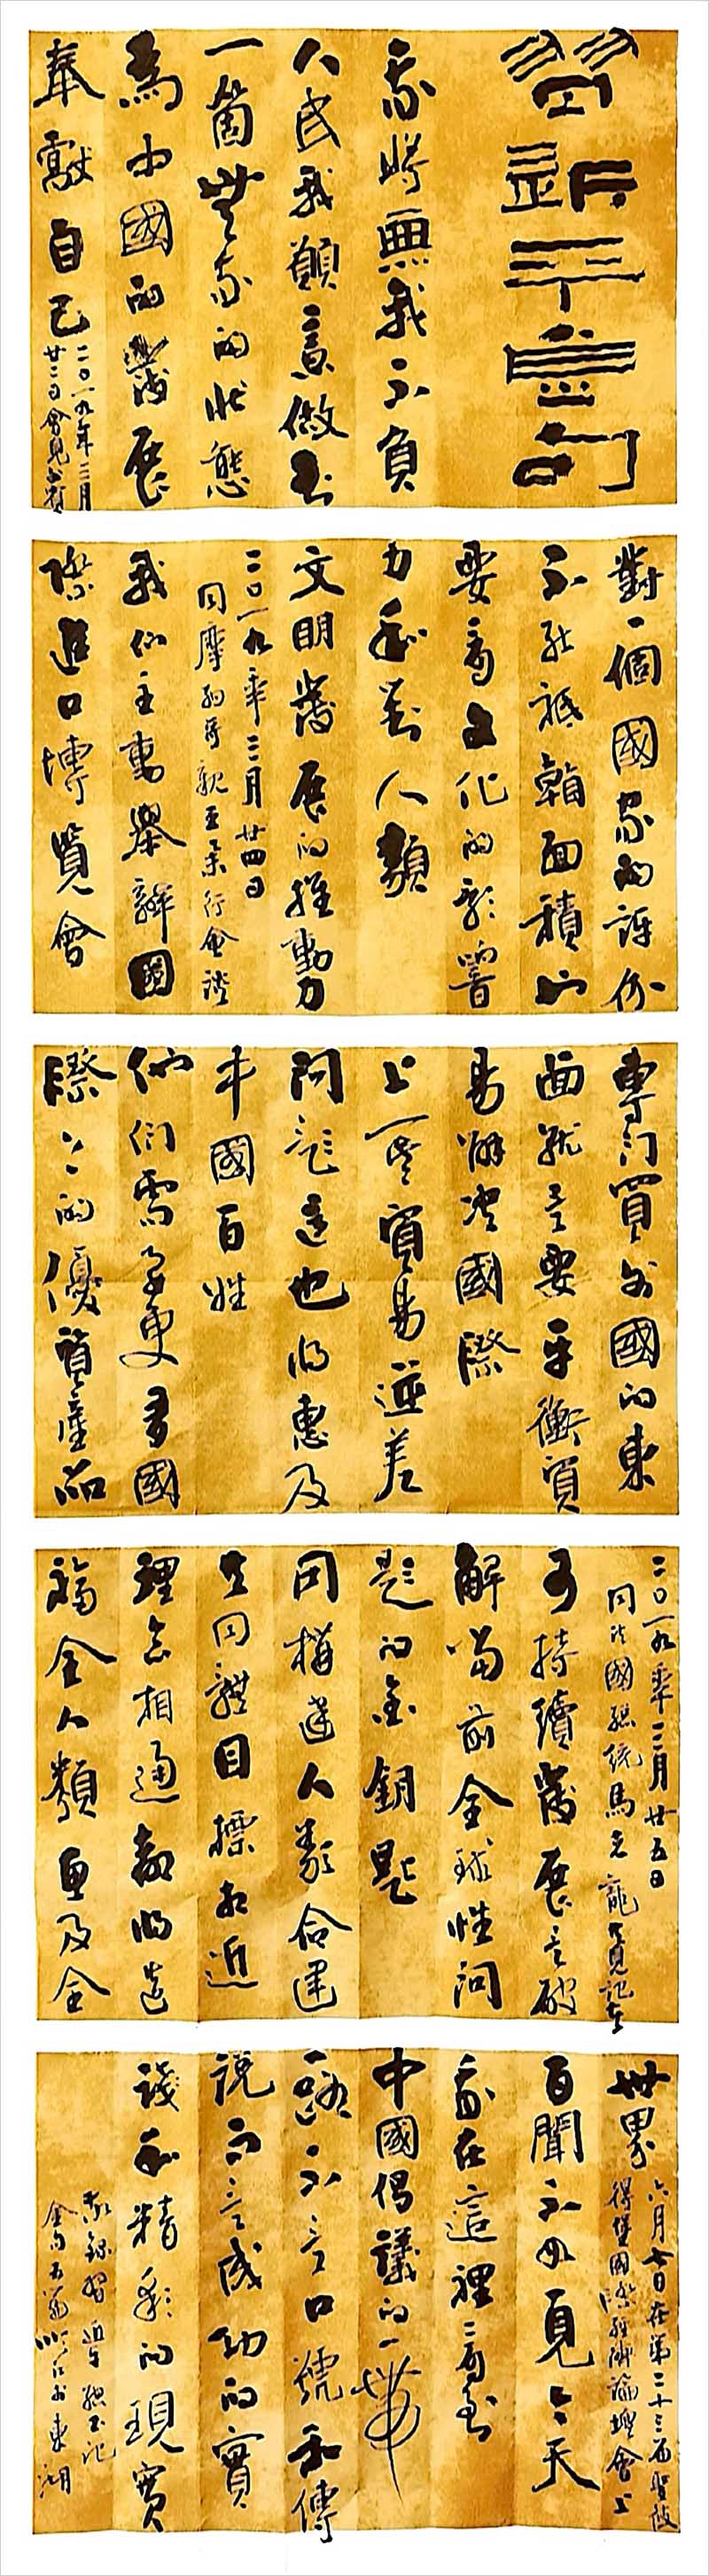 習近平金句
我將無我不負
人民我願意做到
一箇無我的狀態
爲中國的發展
奉獻自己
二〇一九年三月
廿二日會見
對一個國家的評價
不能祗賴面積
要看文化的影響
力和對人類
文明發展的推動力
二〇一九年三月廿四日
同摩納哥親王舉行會談
我們主動舉辦國
際進口博覽會
專門買外國的東
西就是要平衡貿
易解决國際
上一些貿易逆差
問題這也將惠及
中國百姓
他們需要更多國
際上的優質產品
二〇一九年三月廿五日
同法國總統馬克龍會見記者
可持續發展是破
解當前全球性問
題的金鑰匙
同構建人類命運
共同體目標相近
理念相通都將造
福全人類惠及全
世界
六月七日在第二十三届聖彼
得堡國際經濟論壇會上
百聞不如一見今天
我在這裡看到
中國倡議的一帶一
路不是口號和傳
說而是成功的實
踐和精彩的現實
敬錄習近平總書記
金句五篇 於東湖